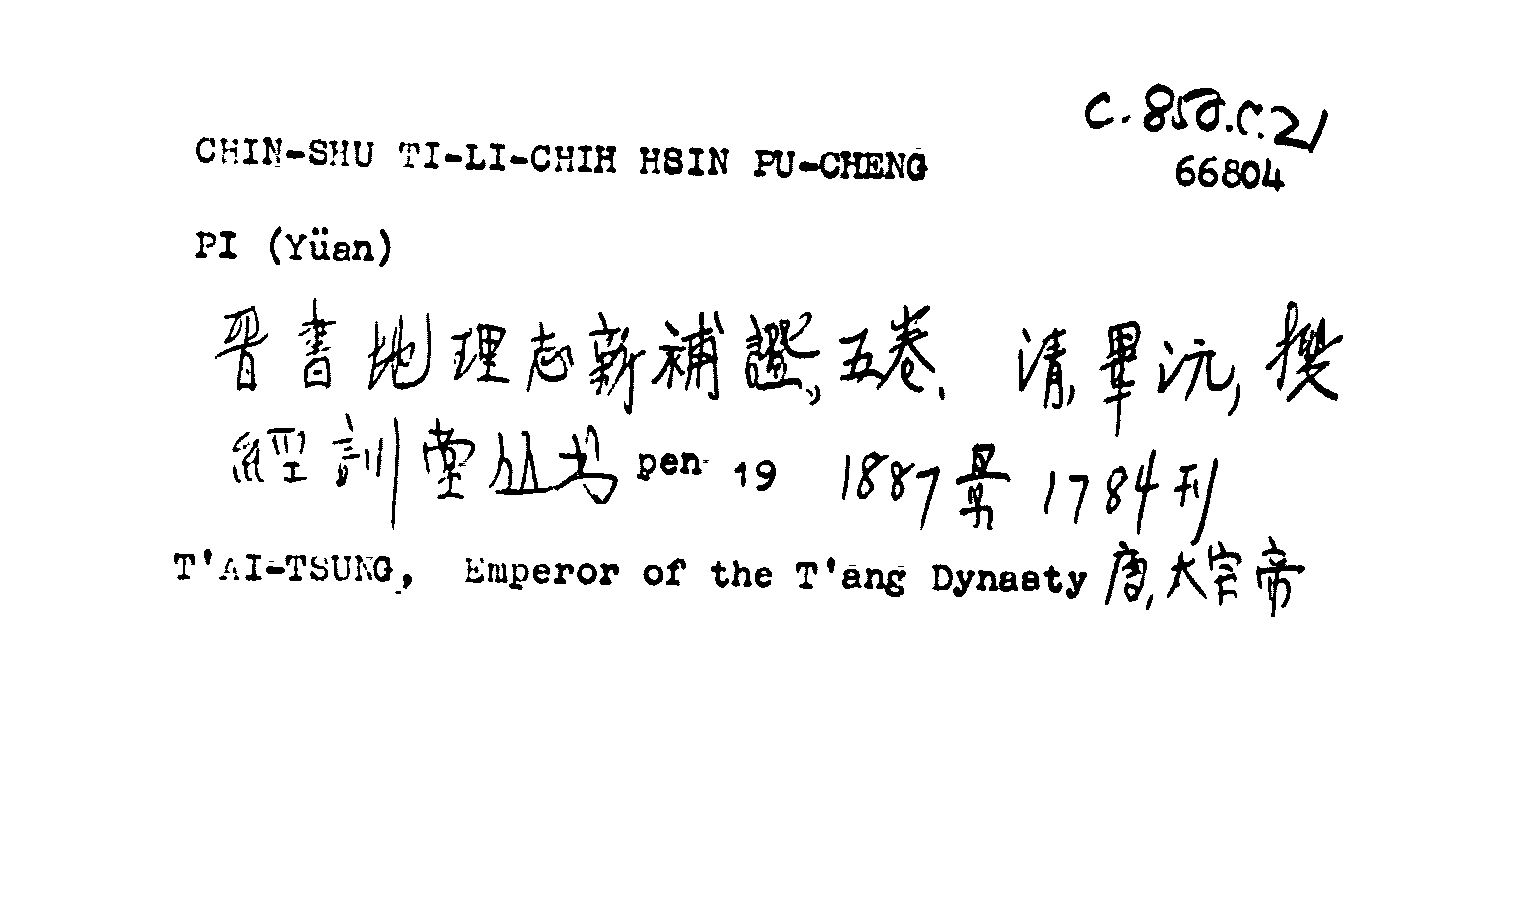 C.850.C.21
CHIN-SHU TI-LI-CHIH HSIN PU-CHENG
66804
PI (Yüan)
晋書地理志新補證,五卷. 清,畢沅,撰
經訓堂丛书 pen 19 1887景 1784刊
T'AI-TSUNG, Emperor of the T'ang Dynasty 唐,太宗帝